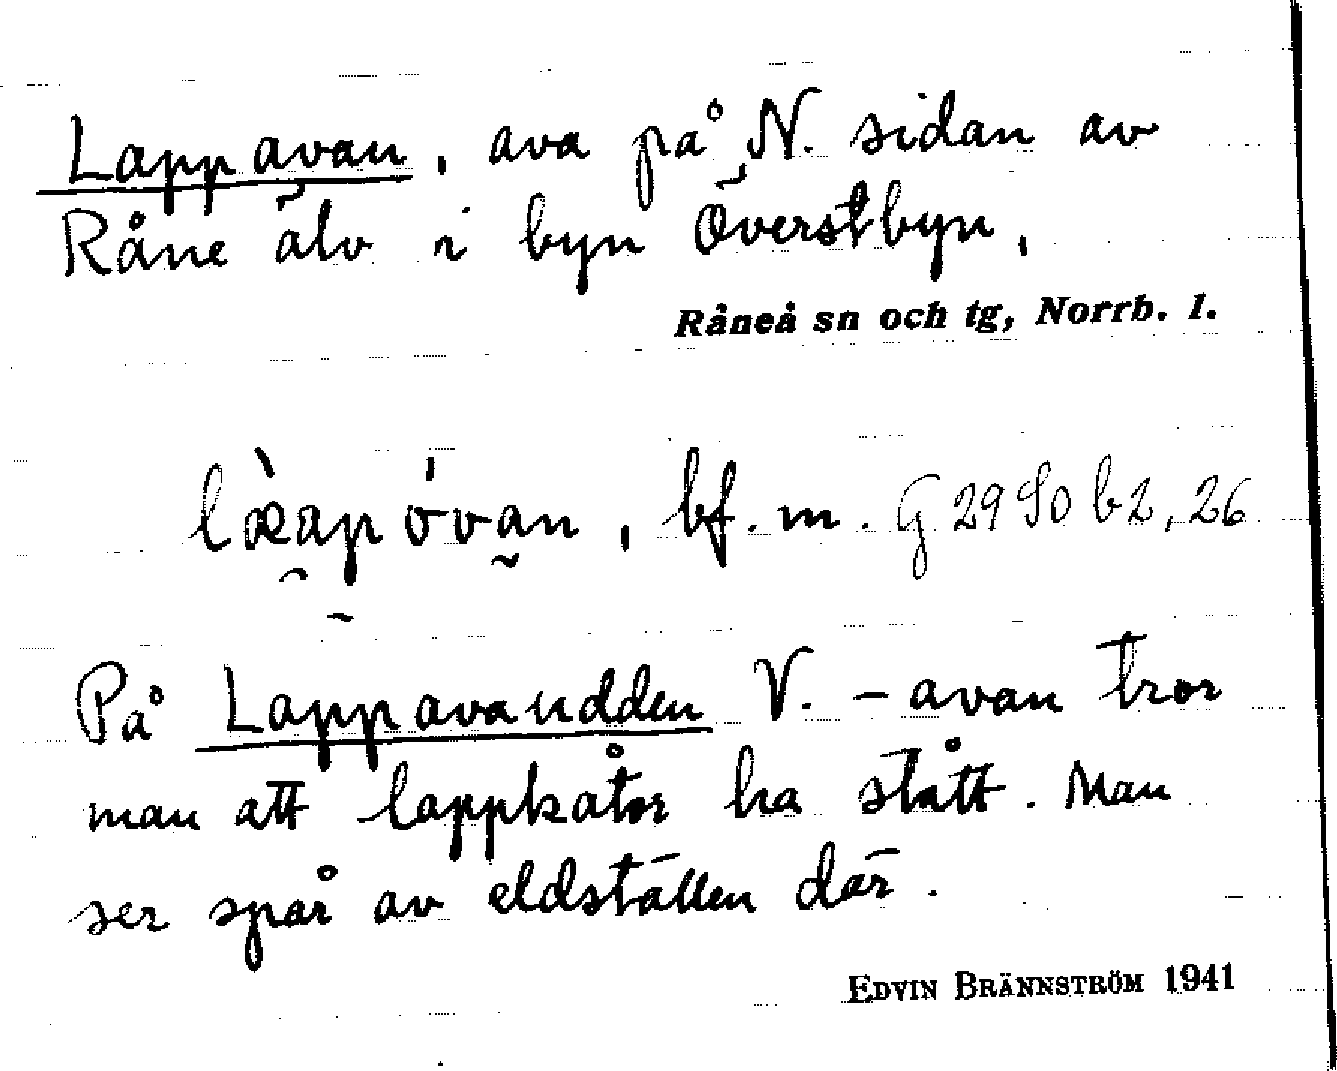 Lappavan, ava på N. sidan av
Råne älv i byn Överstbyn.
Råneå sn och tg, Norrb. l.
bf. m. G 29 So b 2, 26
På Lappavaudden V. – avan tror
man att lappkåtor ha stått. Man
ser spår av eldställen där.
EDVIN BRÄNNSTRÖM 1941